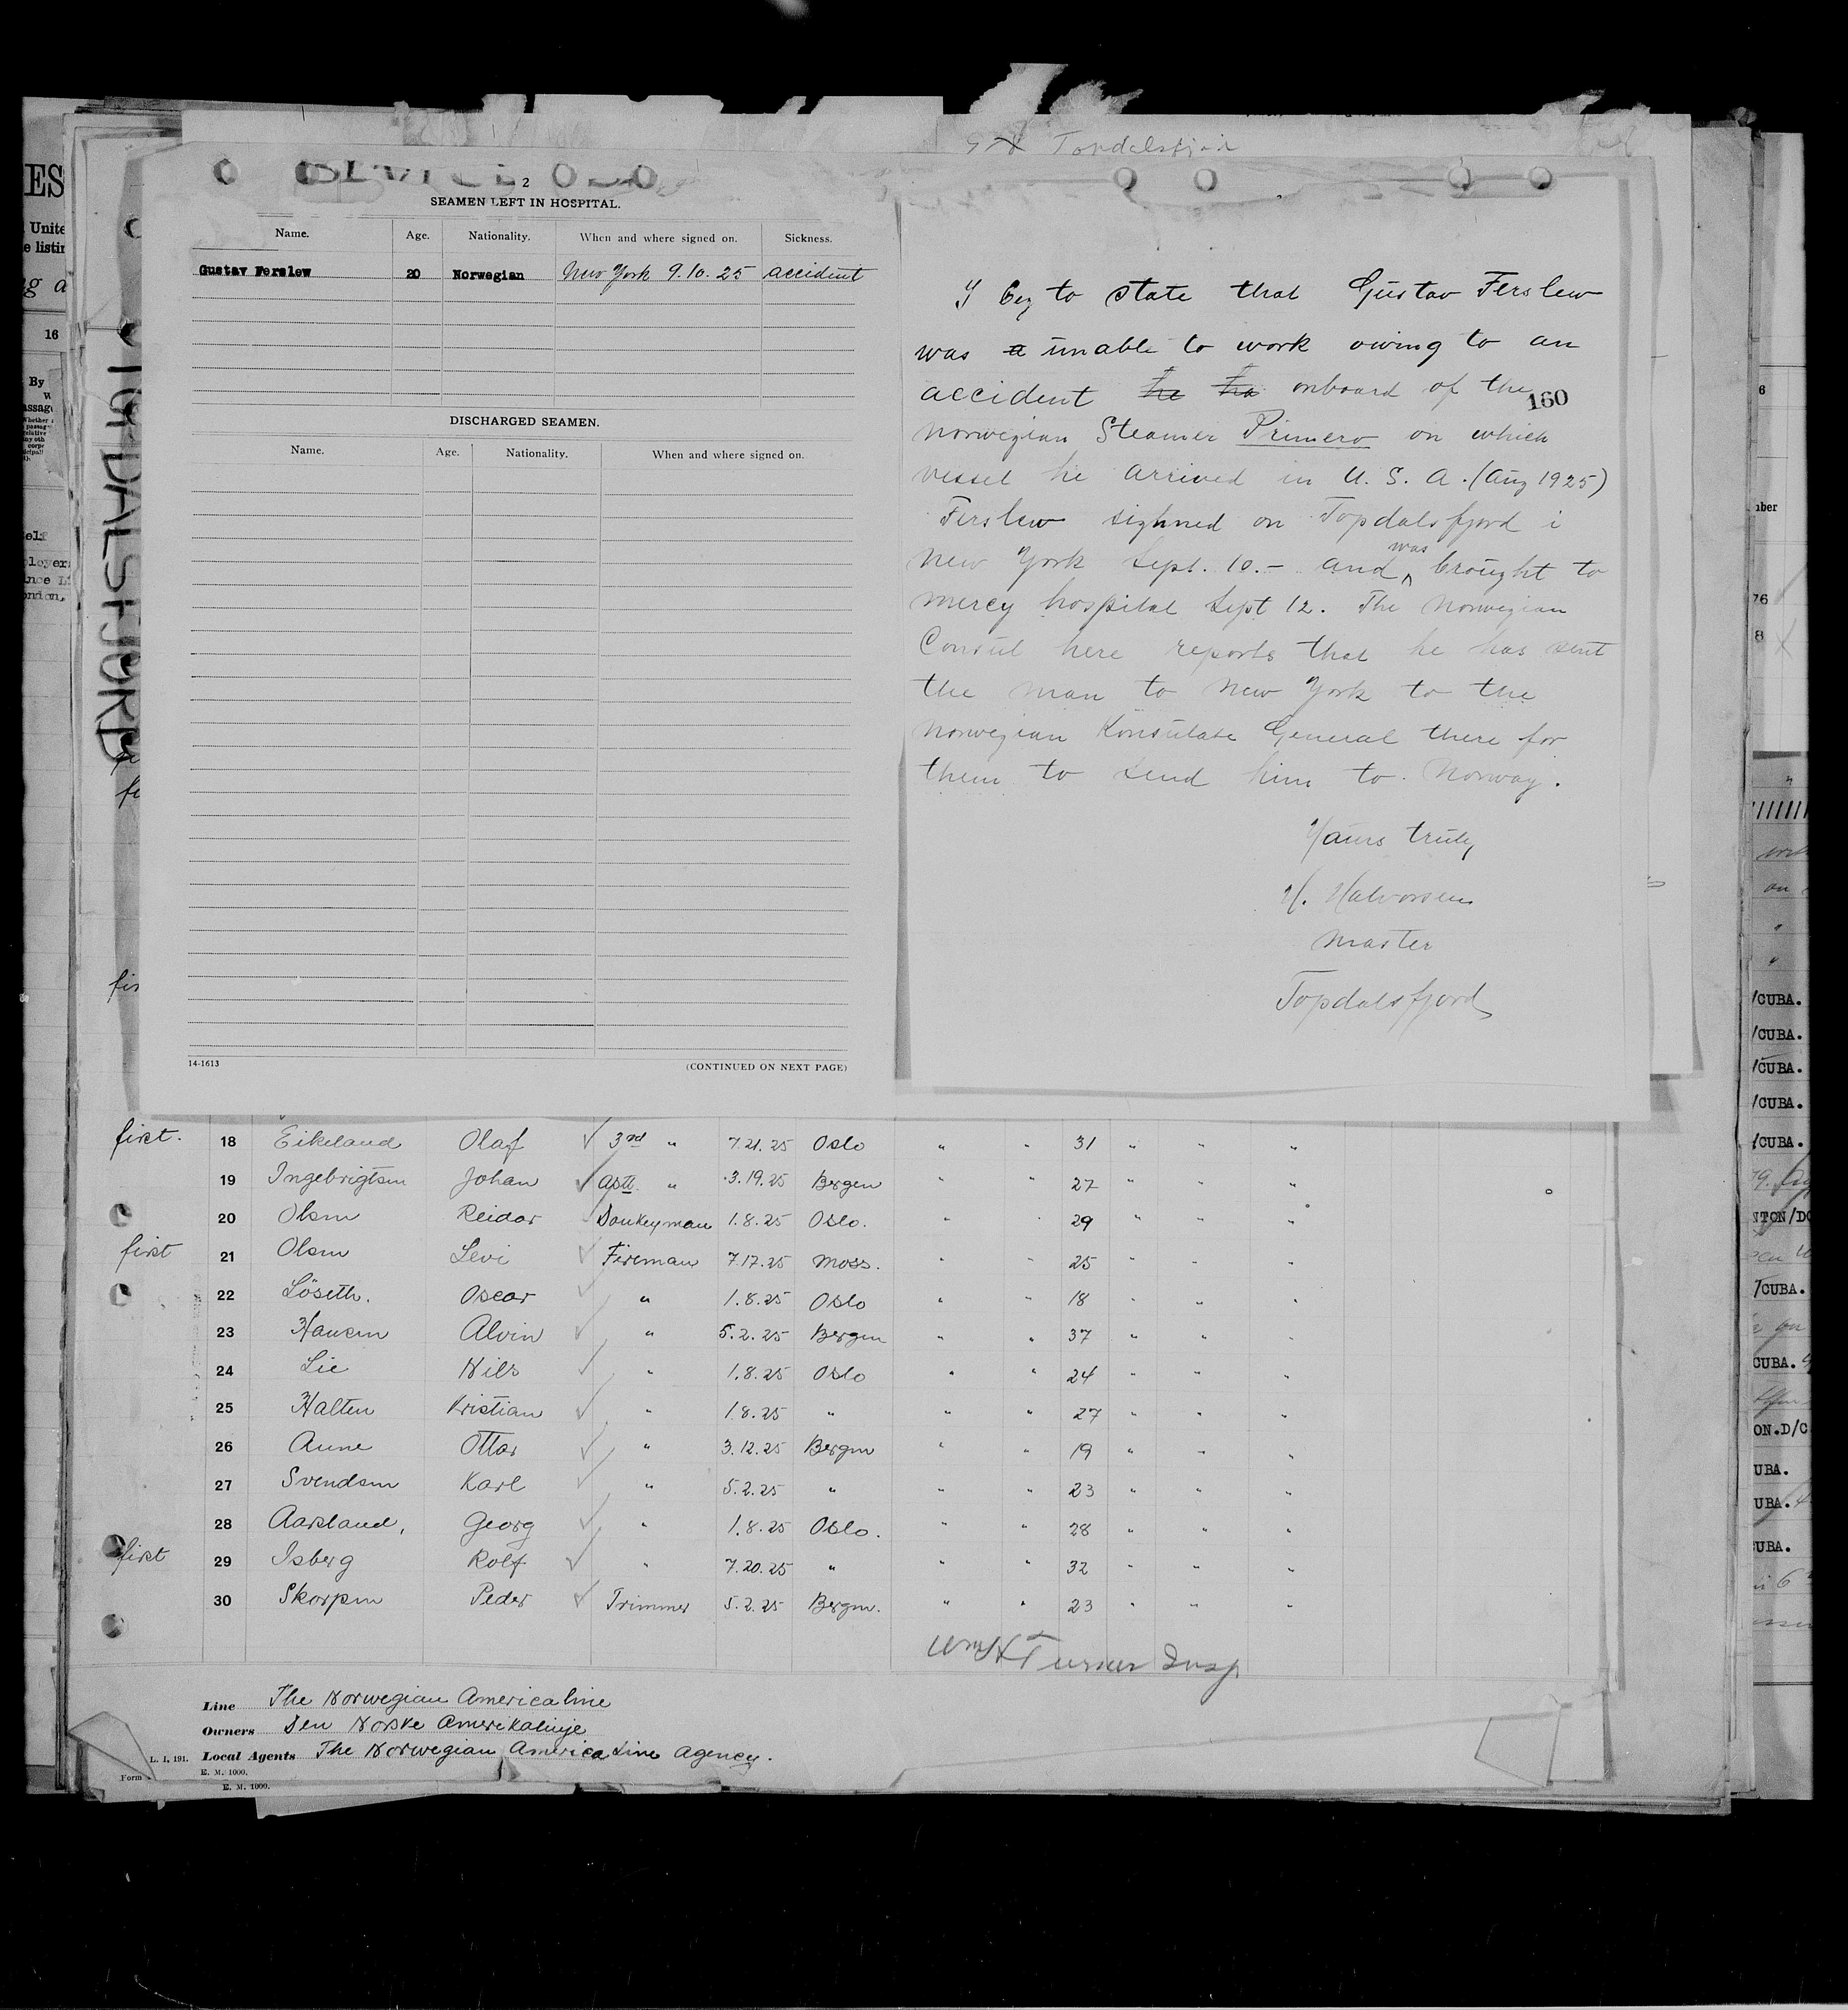 Topdalsfjord
2
SEAMEN LEFT IN HOSPITAL.
Name. Age. Nationality. When and where signed on. Sickness.
Gustav Ferslew 20 Norwegian New York 9.10.25 accident
DISCHARGED SEAMEN.
Name. Age. Nationality. When and where signed on.
14-1613 (CONTINUED ON NEXT PAGE)
I beg to state that Gustav Ferslew
was a unable to work owing to an
accident he ha onboard of the
160
norwegian Steamer Primero on which
vessel he arrived in U. S. A. (Aug 1925)
Ferslew sighned on Topdalsfjord i
New York Sept. 10.- and was brought to
mercy hospital Sept 12. The Norwegian
Consul here reports that he has sent
the man to New York to the
Norwegian Konsulate General there for
them to send him to Norway.
Yours truly
H. Halvorsen
Master
Topdalsfjord
TOPDALSFJORD
first. 18 Eikeland Olaf 3rd " 7.21.25 Oslo " " 31 " " "
19 Ingebrigtsen Johan Asst. " 3.19.25 Bergen " " 27 " " "
20 Olsen Reidar Donkeyman 1.8.25 Oslo. " " 29 " " "
first 21 Olsen Levi Fireman 7.17.25 Moss. " " 25 " " "
22 Löseth. Oscar " 1.8.25 Oslo " " 18 " " "
23 Hansen Alvin " 5.2.25 Bergen " " 37 " " "
24 Lie Nils " 1.8.25 Oslo " " 24 " " "
25 Halten Kristian " 1.8.25 " " " 27 " " "
26 Aune Ottar " 3.12.25 Bergen " " 19 " " "
27 Svendsen Karl " 5.2.25 " " " 23 " " "
28 Aarsland, Georg " 1.8.25 Oslo. " " 28 " " "
first 29 Isberg Rolf " 7.20.25 " " " 32 " " "
30 Skorpen Peder Trimmer 5.2.25 Bergen. " " 23 " " "
Wm H Turner Insp
Line The Norwegian Americaline
Owners Den Norske Amerikalinje
L. I, 191. Local Agents The Norwegian America Line Agency.
Form E. M. 1000.
E. M. 1000.
/CUBA.
/CUBA.
/CUBA.
/CUBA.
/CUBA.
/CUBA.
CUBA.
ON.D/C
UBA.
UBA.
UBA.